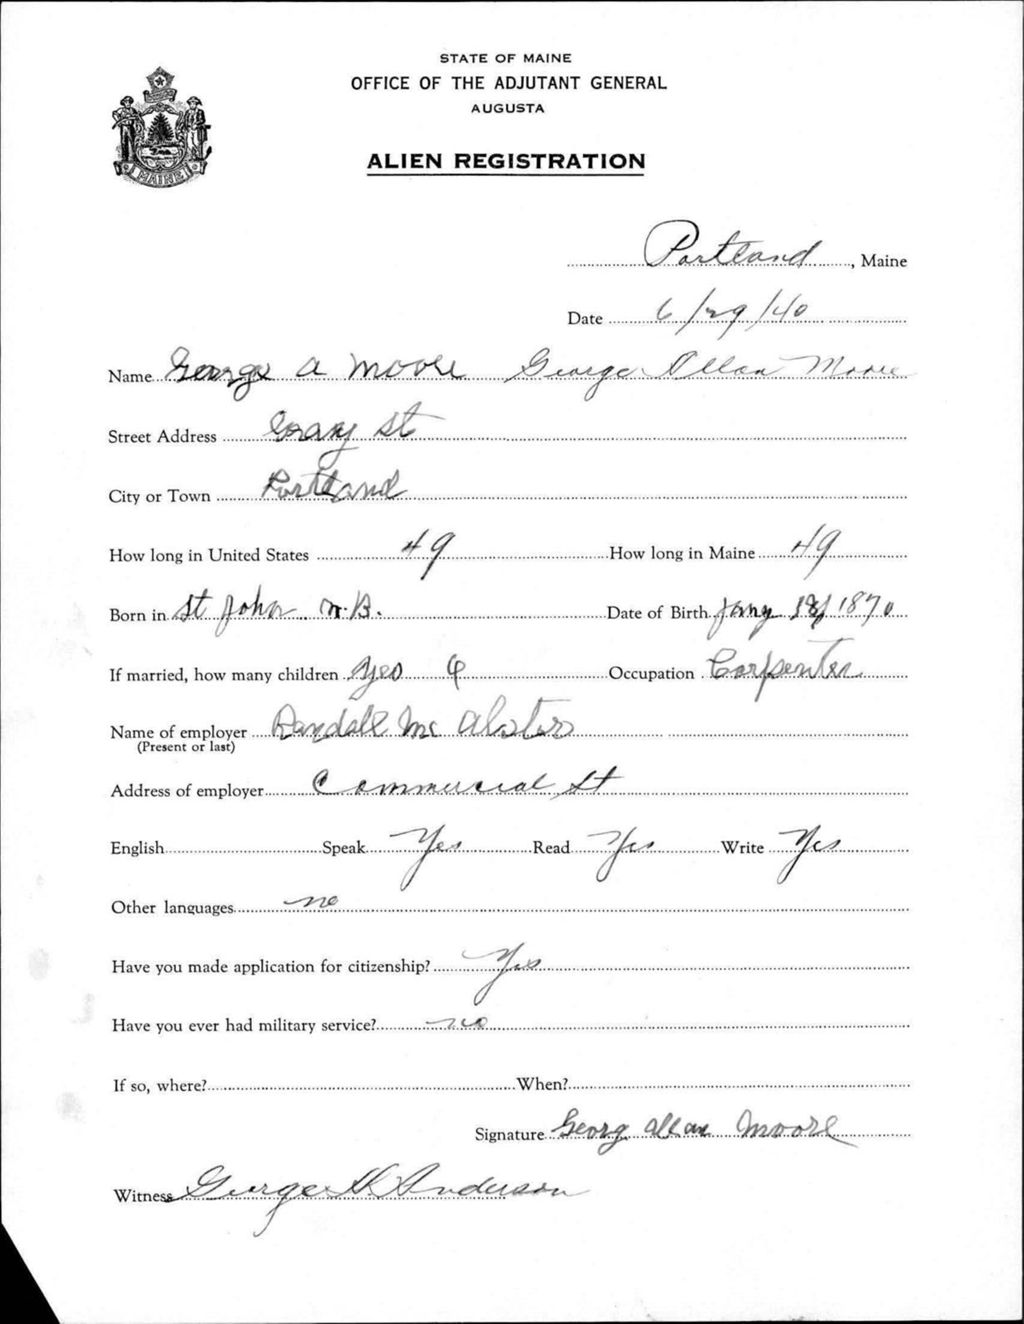 STATE OF MAINE
OFFICE OF THE ADJUTANT GENERAL
AUGUSTA
ALIEN REGISTRATION
MAINE
Portland, Maine
Date 6/29/40
Name George A Moore George Allan Moore
Street Address Gray St
City or Town Portland
How long in United States 49 How long in Maine 49
Born in St John N.B. Date of Birth Jany 18, 1870
If married, how many children Yes Occupation Carpenter
Name of employer Randall Mc Alster
(Present or last)
Address of employer Commercial St
English Speak Yes Read Yes Write Yes
Other languages no
Have you made application for citizenship? Yes
Have you ever had military service? no
If so, where? When?
Signature Georg Allan Moore
Witness George H Anderson